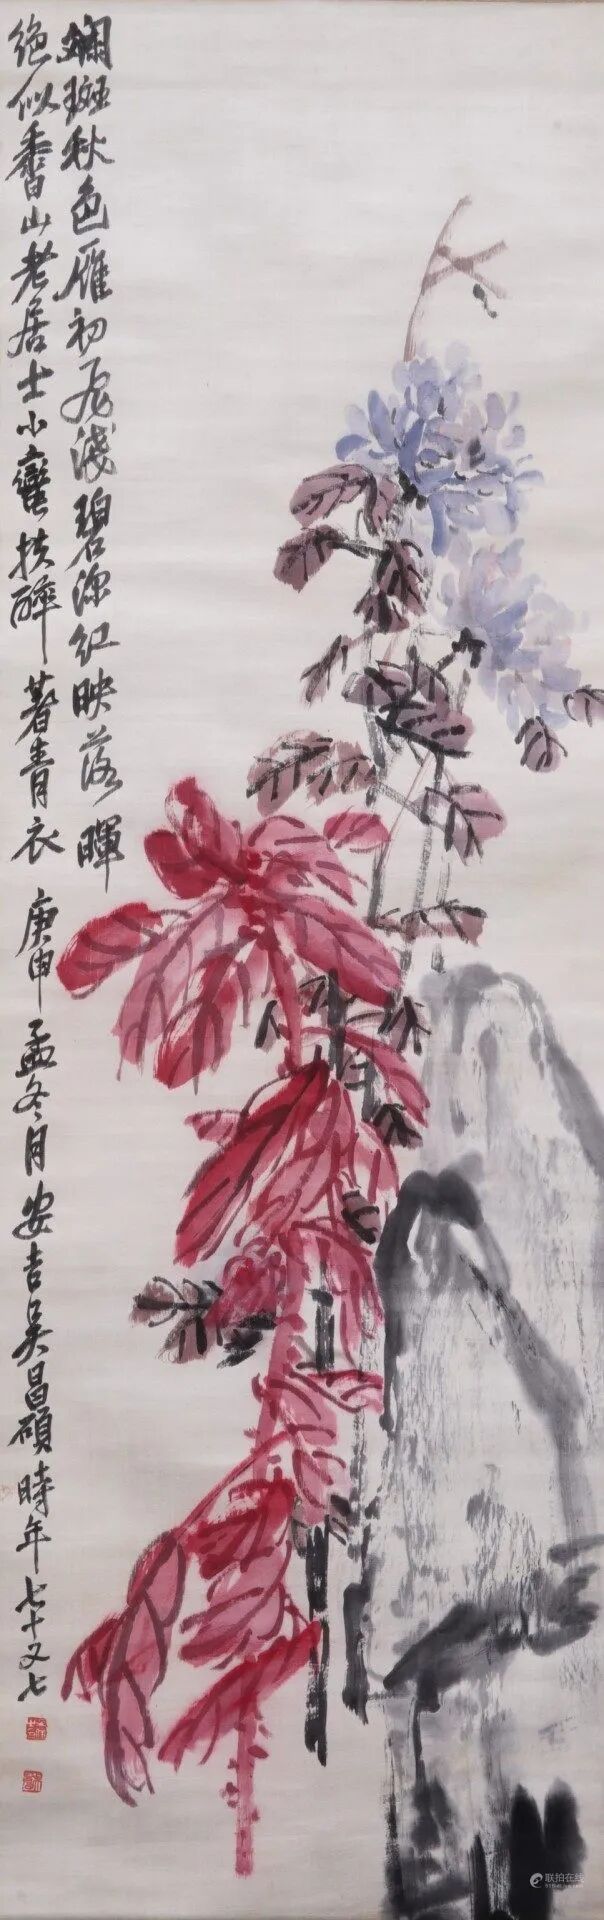 斓斑秋色雁初飛淺碧深紅映落暉
絶似香山老居士小蠻扶醉著青衣
庚申孟冬月安吉吳昌碩時年七十又七
联拍在线